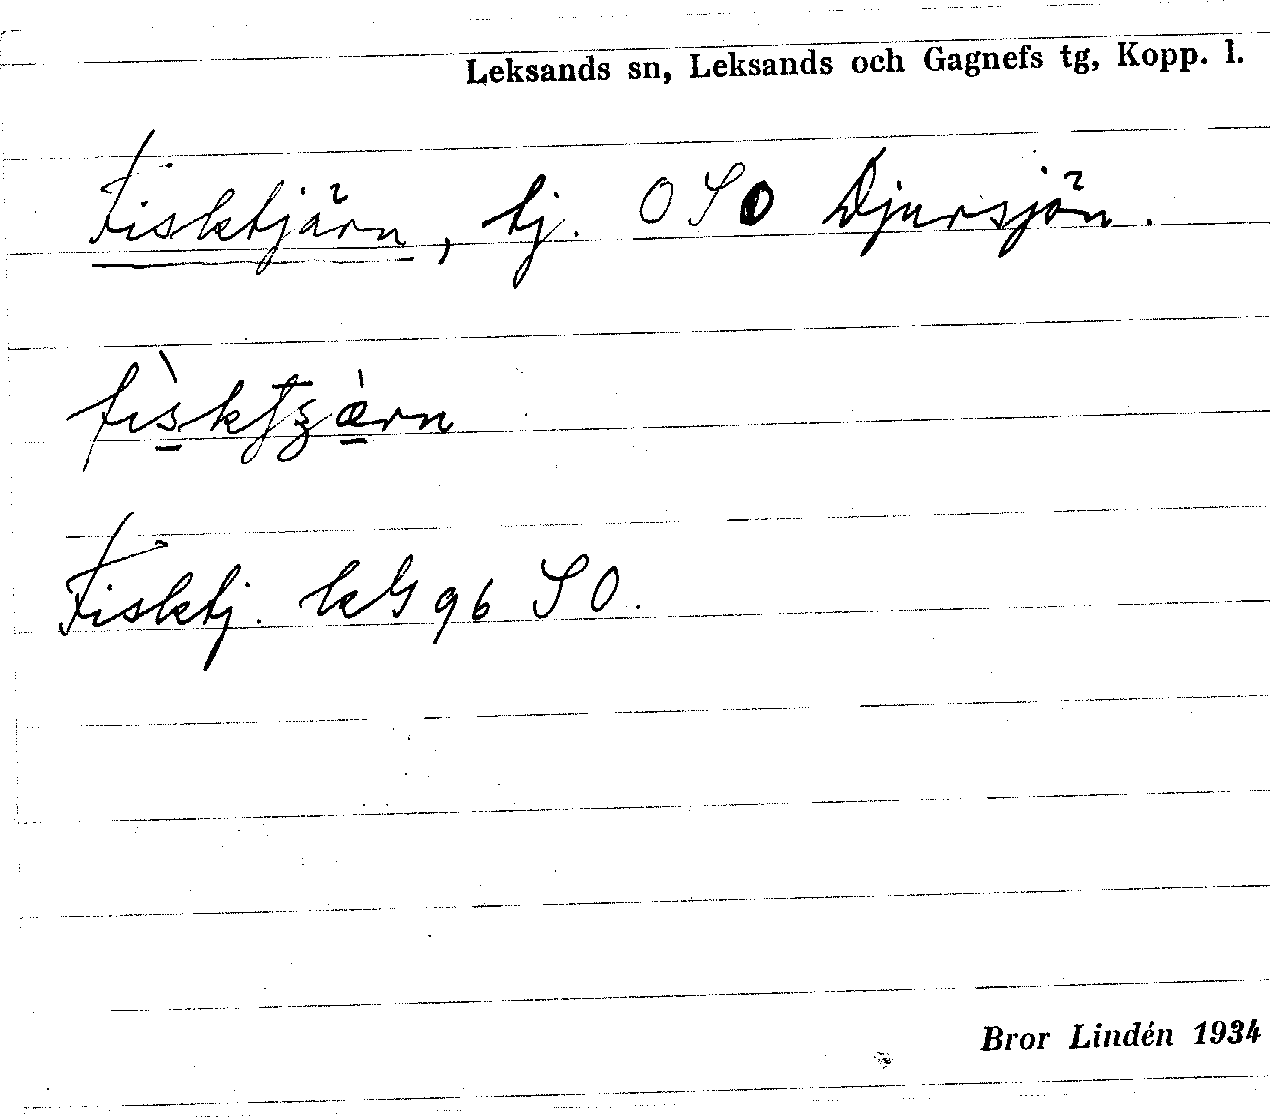 Leksands sn, Leksands och Gagnefs tg, Kopp. l.
Fisktjärn, tj. O S O Djursjön.
Fisktj. 96 SO.
Bror Lindén 1934